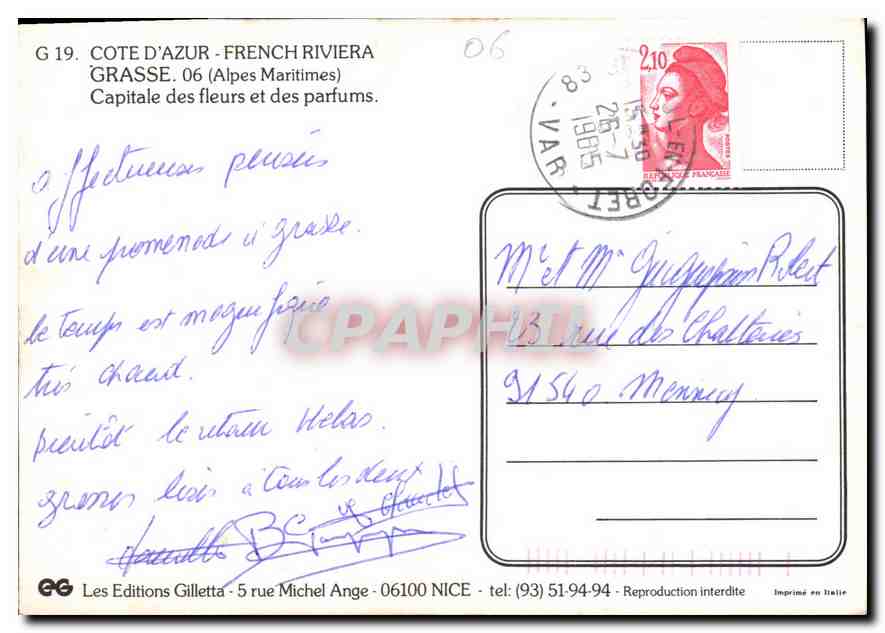 G 19. COTE D'AZUR - FRENCH RIVIERA
GRASSE. 06 (Alpes Maritimes)
Capitale des fleurs et des parfums.
06
83
15 H 30
26-7
1985
L-EN-FORET
• VAR •
2,10
POSTES
REPUBLIQUE FRANÇAISE
affectueuses pensées
d'une promenade à grasse.
le temps est magnifique
très chaud.
bientôt le retour Helas.
grosses bises à tous les deux
Mr et Me Robert
23 rue des Chataniers
91540 Mennecy
CPAPHIL
EG Les Editions Gilletta - 5 rue Michel Ange - 06100 NICE - tel: (93) 51-94-94 - Reproduction interdite
Imprimé en Italie